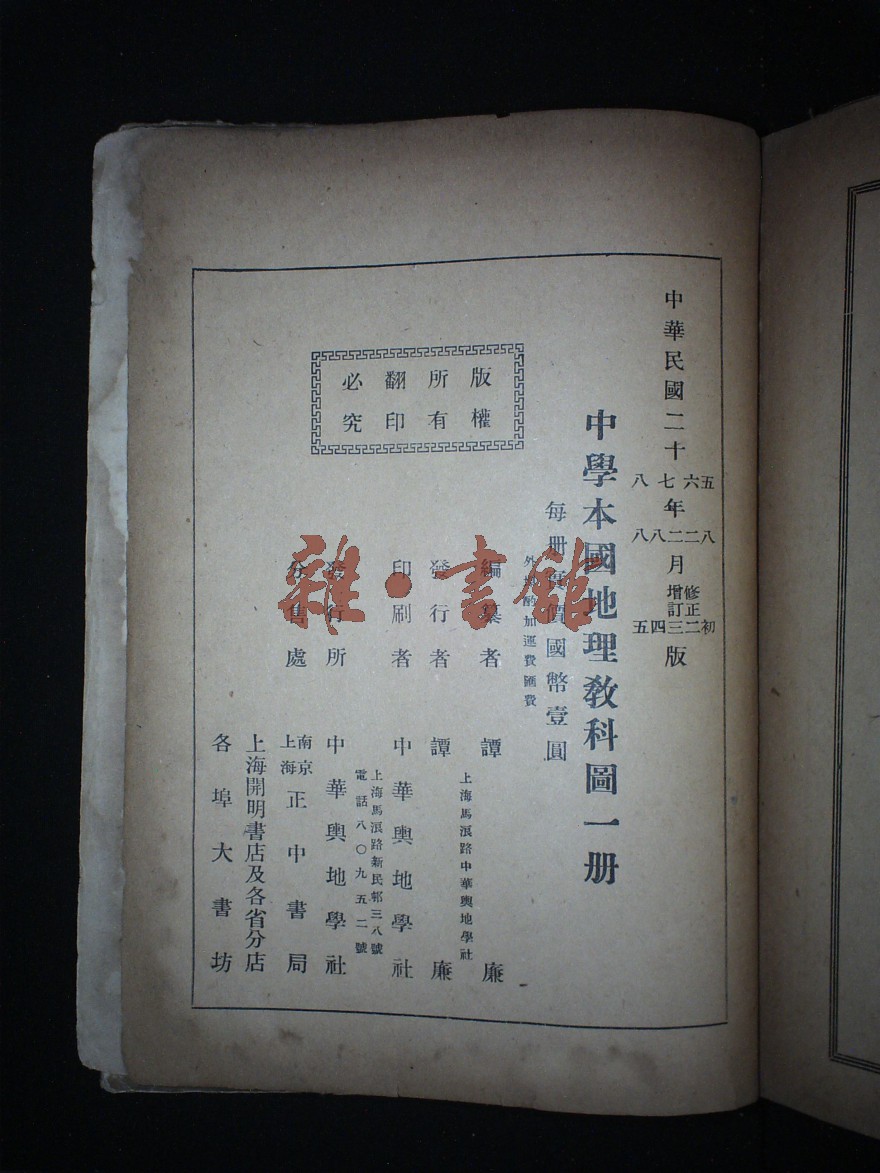 中華民國二十五六七八年八二二八八月修正增訂初二三四五版
中學本國地理教科圖一册
每册實價國幣壹圓
外埠酌加運費匯費
版權
所有
翻印
必究
編纂者 譚廉
上海馬浪路中華輿地學社
發行者 譚廉
印刷者 中華輿地學社
上海馬浪路新民邨三八號
電話八〇九五二號
發行所 中華輿地學社
分售處 南京上海正中書局
上海開明書店及各省分店
各埠大書坊
雜·書館